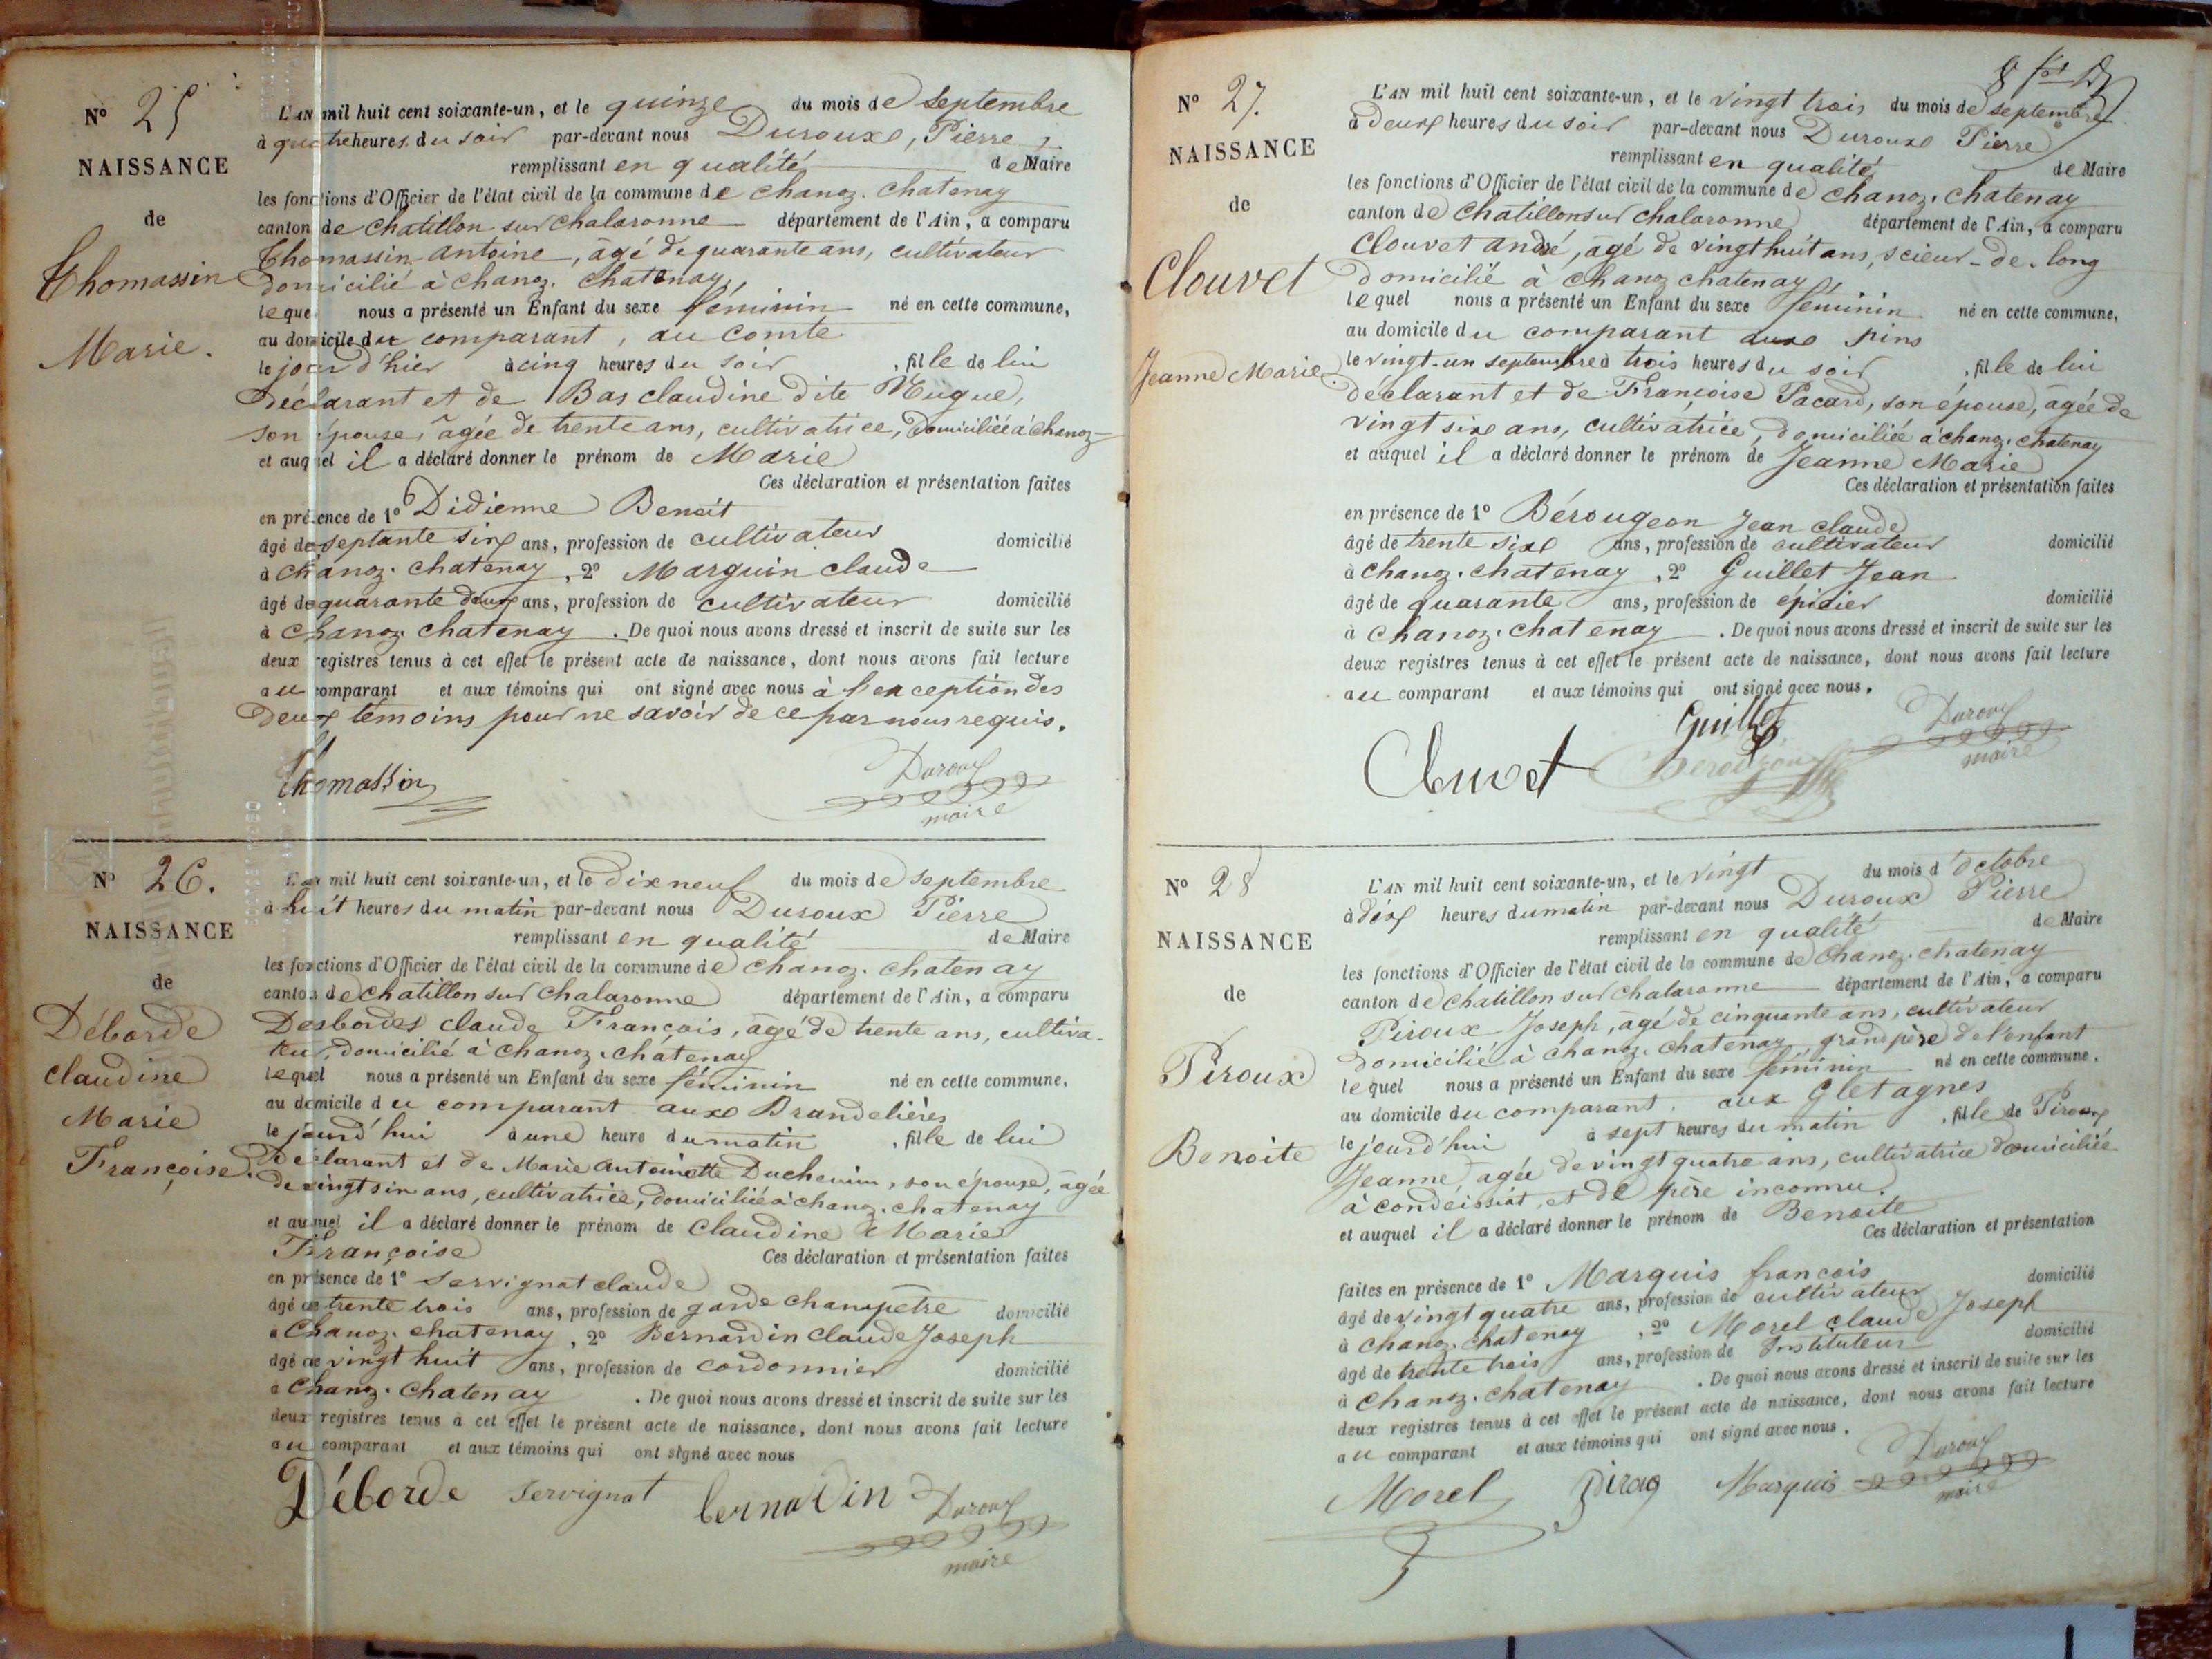 N° 25
NAISSANCE
de
Thomassin
Marie.
L'AN mil huit cent soixante-un, et le quinze du mois de Septembre
à quatre heures du soir par-devant nous Duroux, Pierre,
remplissant en qualité de Maire
les fonctions d'Officier de l'état civil de la commune de Chanoz. Chatenay
canton de Chatillon sur Chalaronne département de l'Ain, a comparu
Thomassin Antoine, âgé de quarante ans, cultivateur
domicilié à Chanoz. Chatenay,
lequel nous a présenté un Enfant du sexe féminin né en cette commune,
au domicile du comparant, au Comte
le jour d'hier à cinq heures du soir, fille de lui
Déclarant et de Bas claudine dite
son épouse, âgée de trente ans, cultivatrice, Domiciliée à Chanoz
et auquel il a déclaré donner le prénom de Marie
Ces déclaration et présentation faites
en présence de 1° Didienne Benoit
âgé de septante six ans, profession de cultivateur domicilié
à Chanoz. Chatenay, 2° Marguin claude
âgé de quarante deux ans, profession de cultivateur domicilié
à Chanoz. Chatenay. De quoi nous avons dressé et inscrit de suite sur les
deux registres tenus à cet effet le présent acte de naissance, dont nous avons fait lecture
au comparant et aux témoins qui ont signé avec nous à l'exception des
Deux témoins pour ne savoir de ce par nous requis.
Thomassin
Duroux
maire
N° 26.
NAISSANCE
de
Déborde
claudine
Marie
Françoise.
L'AN mil huit cent soixante-un, et le Dix neuf du mois de Septembre
à huit heures du matin par-devant nous Duroux Pierre
remplissant en qualité de Maire
les fonctions d'Officier de l'état civil de la commune de Chanoz. Chatenay
canton de Chatillon sur Chalaronne département de l'Ain, a comparu
Desbordes claude François, âgé de trente ans, cultiva-
teur, domicilié à Chanoz. Châtenay
lequel nous a présenté un Enfant du sexe féminin né en cette commune,
au domicile du comparant aux Brandelières
le jourd'hui à une heure du matin, fille de lui
Déclarant et de Marie Antoinette Duchenim, son épouse, âgée
de vingt six ans, cultivatrice, domiciliée à chanoz. chatenay
et auquel il a déclaré donner le prénom de Claudine Marie
Françoise Ces déclaration et présentation faites
en présence de 1° Servignat claude
âgé de trente trois ans, profession de garde champêtre domicilié
à Chanoz. chatenay, 2° Bernardin claude Joseph
âgé de vingt huit ans, profession de cordonnier domicilié
à Chanoz. Chatenay. De quoi nous avons dressé et inscrit de suite sur les
deux registres tenus à cet effet le présent acte de naissance, dont nous avons fait lecture
au comparant et aux témoins qui ont signé avec nous
Déborde Servignat bernadin Duroux
maire
N° 27.
NAISSANCE
de
Clouvet
Jeanne Marie.
L'AN mil huit cent soixante-un, et le vingt trois du mois de Septembre
à deux heures du soir par-devant nous Duroux Pierre
remplissant en qualité de Maire
les fonctions d'Officier de l'état civil de la commune de Chanoz. Chatenay
canton de Chatillon sur Chalaronne département de l'Ain, a comparu
Clouvet André, âgé de vingt huit ans, scieur-de-long
domicilié à Chanoz chatenay
lequel nous a présenté un Enfant du sexe féminin né en cette commune,
au domicile du comparant aux pins
le vingt-un septembre à trois heures du soir, fille de lui
déclarant et de Françoise Pacard, son épouse, âgée de
vingt six ans, cultivatrice, domiciliée à chanoz. chatenay
et auquel il a déclaré donner le prénom de Jeanne Marie
Ces déclaration et présentation faites
en présence de 1° Bérougeon Jean claude
âgé de trente six ans, profession de cultivateur domicilié
à Chanoz. chatenay, 2° Guillet Jean
âgé de quarante ans, profession de épicier domicilié
à Chanoz. chatenay. De quoi nous avons dressé et inscrit de suite sur les
deux registres tenus à cet effet le présent acte de naissance, dont nous avons fait lecture
au comparant et aux témoins qui ont signé avec nous.
Guillet Duroux
Clouvet Berougeon maire
N° 28
NAISSANCE
de
Piroux
Benoite
L'AN mil huit cent soixante-un, et le vingt du mois d'octobre
à dix heures du matin par-devant nous Duroux Pierre
remplissant en qualité de Maire
les fonctions d'Officier de l'état civil de la commune de Chanoz. chatenay
canton de Chatillon sur Chalaronne département de l'Ain, a comparu
Piroux Joseph, âgé de cinquante ans, cultivateur
domicilié à Chanoz. chatenay, grand père de l'enfant
lequel nous a présenté un Enfant du sexe féminin né en cette commune,
au domicile du comparant, aux Gletagnes
le jourd'hui à sept heures du matin, fille de Piroux
Jeanne, âgée de vingt quatre ans, cultivatrice domiciliée
à condeissiat, et de père inconnu.
et auquel il a déclaré donner le prénom de Benoite
Ces déclaration et présentation
faites en présence de 1° Marquis françois domicilié
âgé de vingt quatre ans, profession de cultivateur
à Chanoz. Chatenay, 2° Morel claude Joseph
âgé de trente trois ans, profession de Instituteur domicilié
à Chanoz. chatenay. De quoi nous avons dressé et inscrit de suite sur les
deux registres tenus à cet effet le présent acte de naissance, dont nous avons fait lecture
au comparant et aux témoins qui ont signé avec nous.
Morel Marquis Duroux
maire